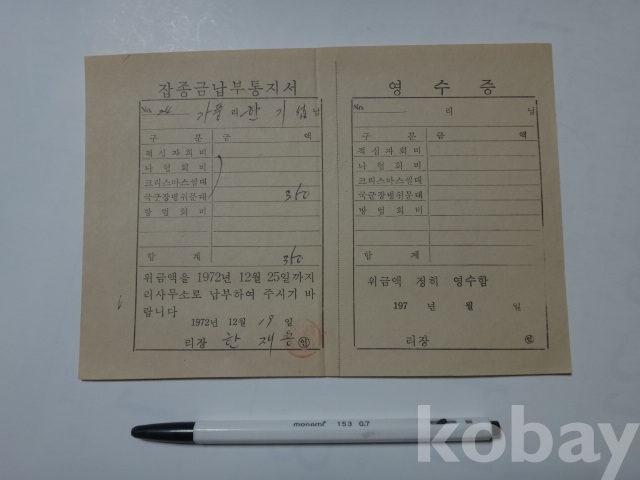 잡종금납부통지서
No. 24 가풍 리 한 기 섭 님
구 분 금 액
적십자회비
나 협 회 비
크리스마스씰대
국군장병위문대 350
방 범 회 비
합 계 350
위금액을 1972년 12월 25일까지
리사무소로 납부하여 주시기 바
랍니다
1972년 12월 19일
리장 한 재 등 ㊞
영 수 증
No. 리 님
구 분 금 액
적 십 자 회 비
나 협 회 비
크리스마스씰대
국군장병위문대
방 범 회 비
합 계
위금액 정히 영수함
197 년 월 일
리장 ㊞
monami 153 0.7
kobay